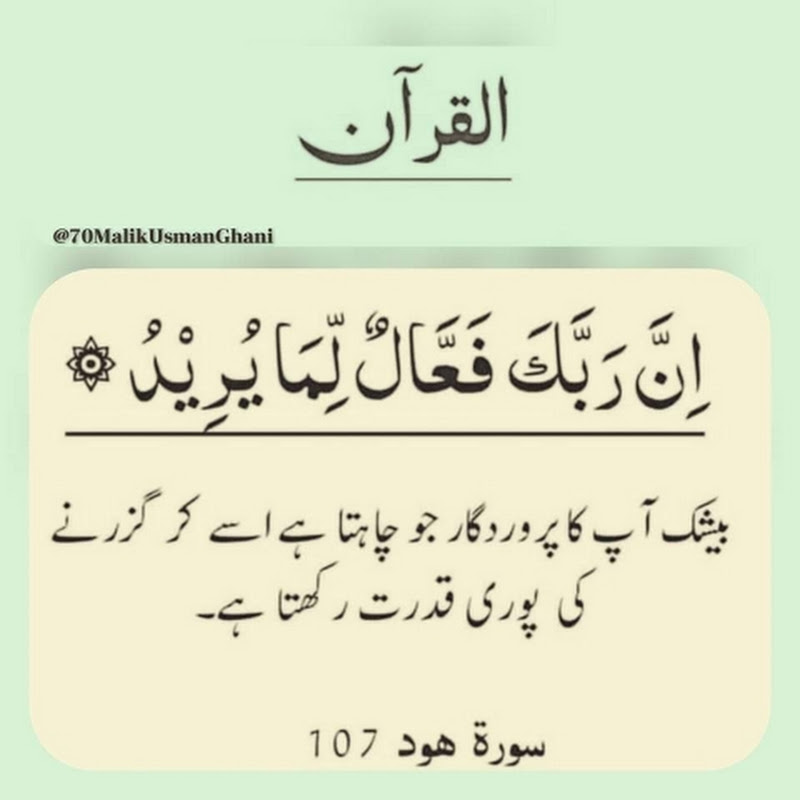 القرآن
@70MalikUsmanGhani
اِنَّ رَبَّكَ فَعَّالٌ لِّمَا يُرِيْدُ
بیشک آپ کا پروردگار جو چاہتا ہے اسے کر گزرنے
کی پوری قدرت رکھتا ہے۔
سورة هود 107